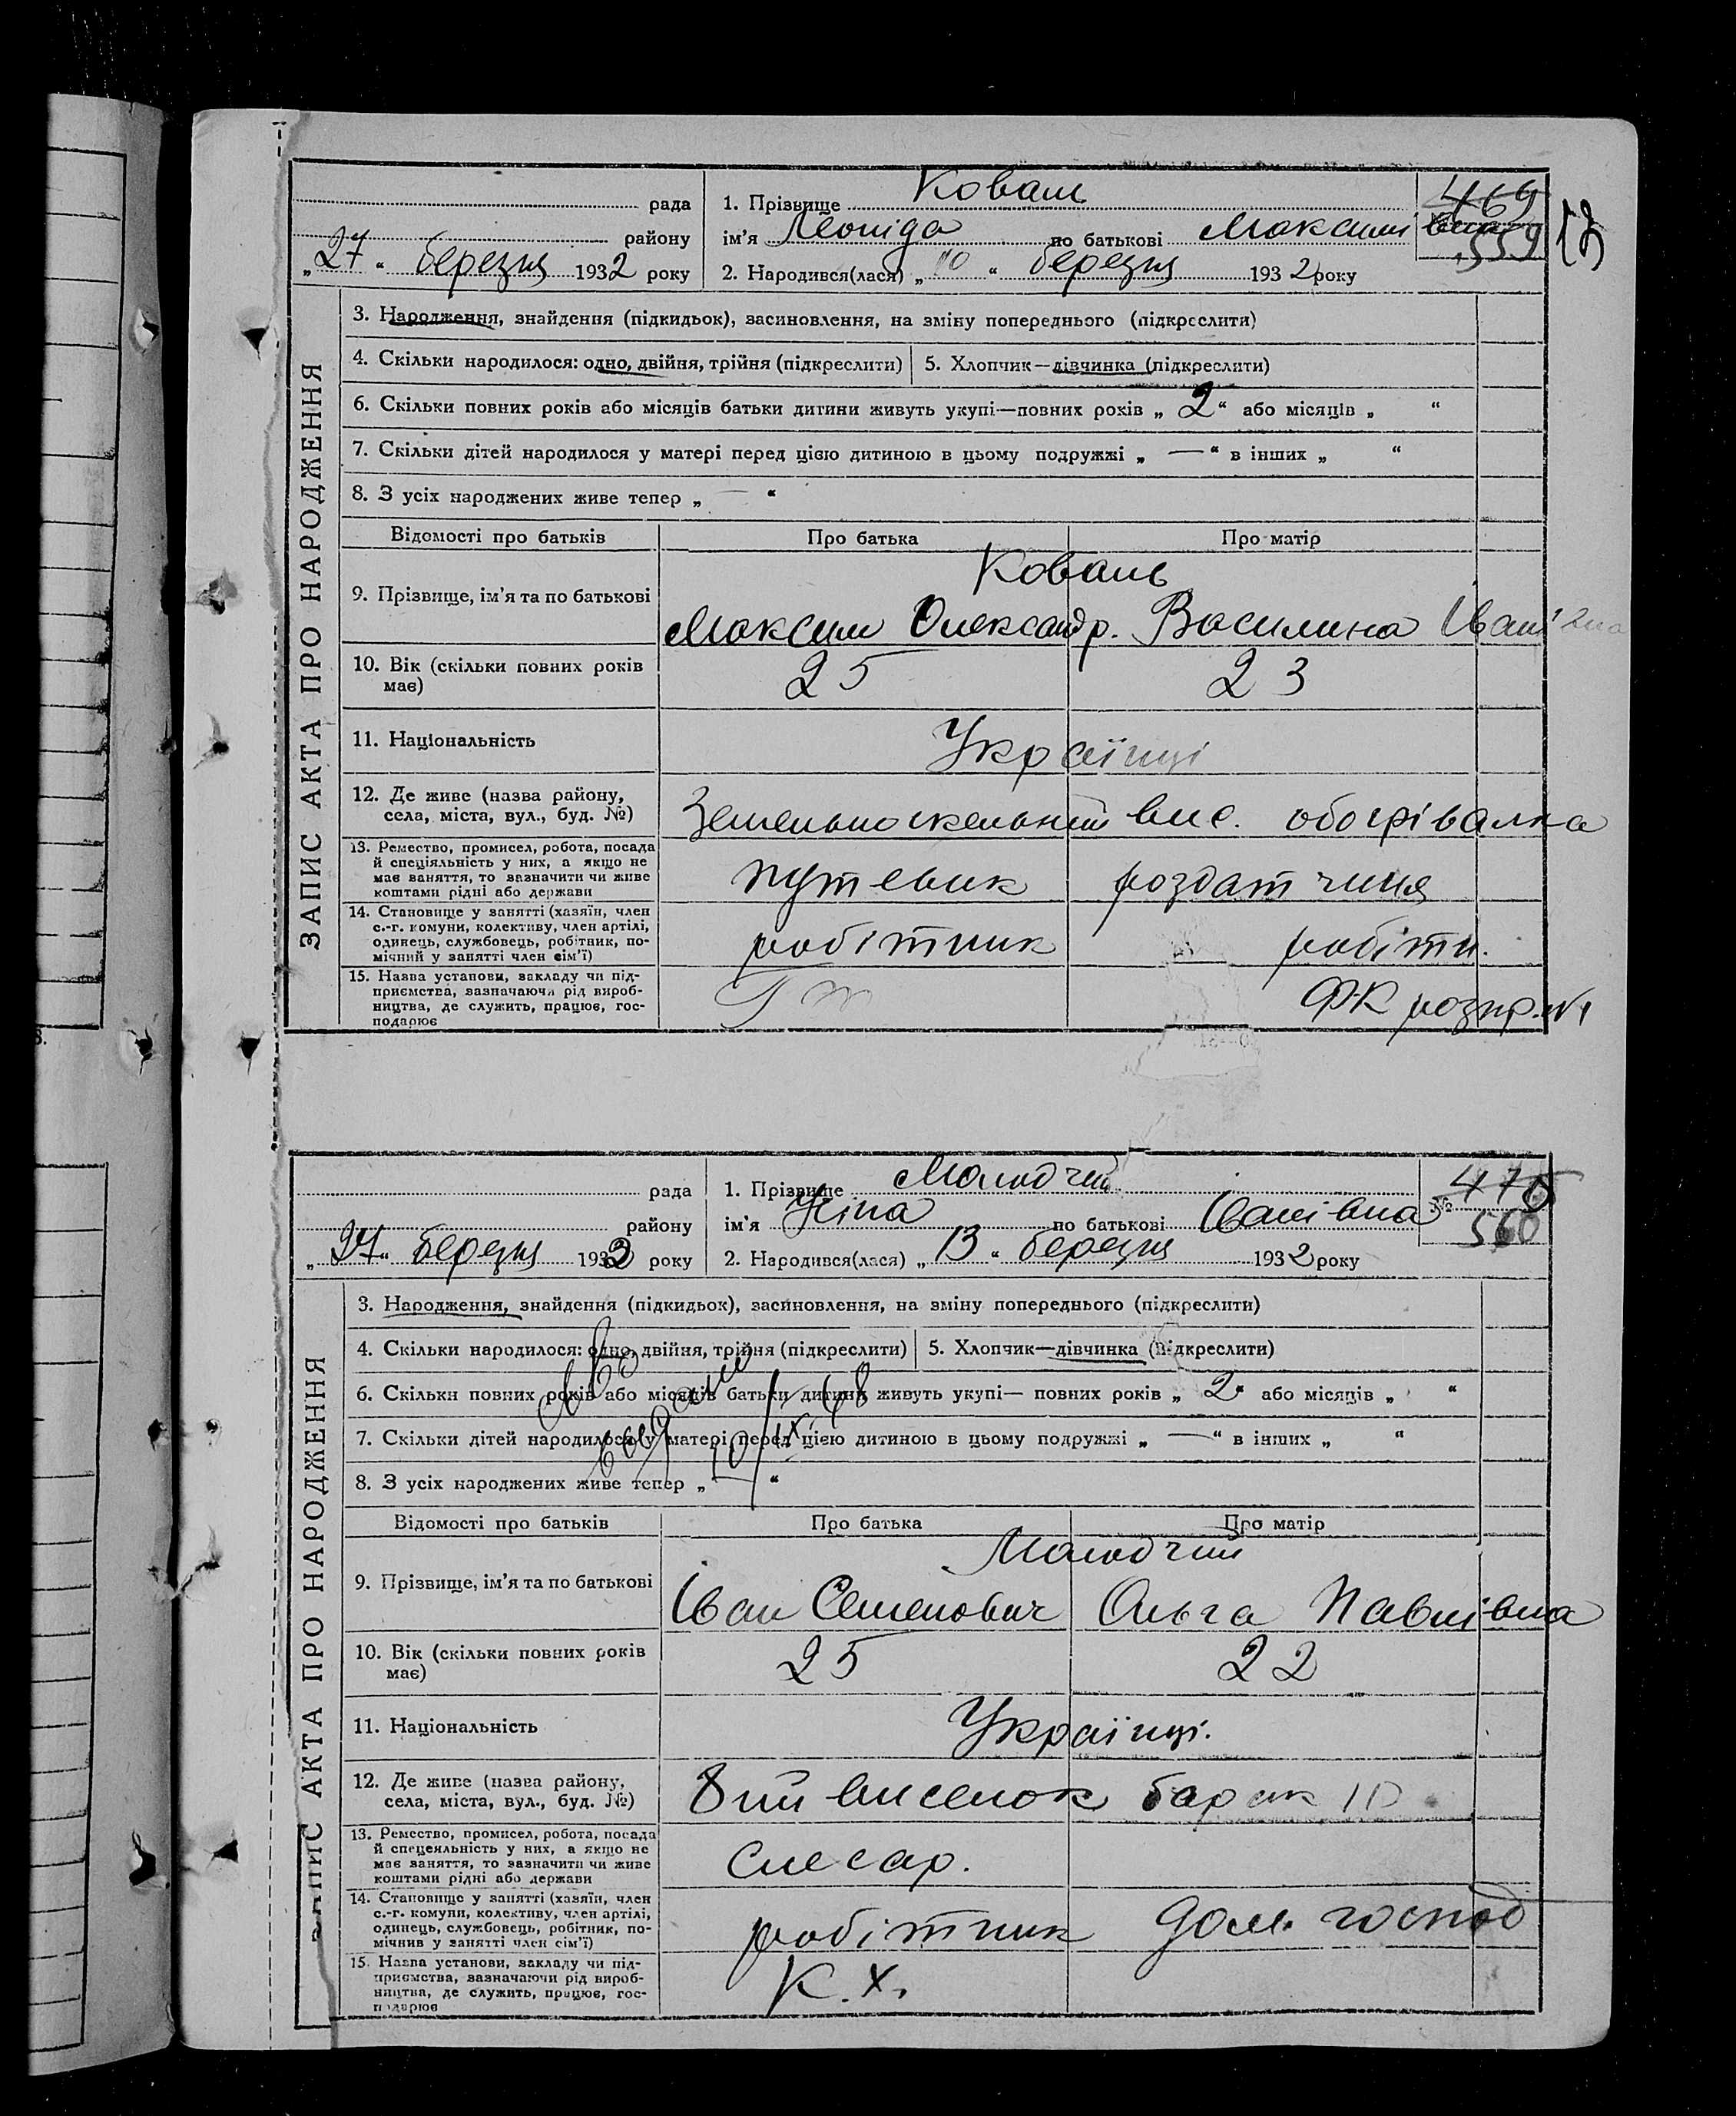 рада
району
„ 27 “ березня 1932 року
1. Прізвище Коваль
ім’я Леоніда по батькові Максимівна
2. Народився(лася) „ 10 “ березня 1932 року
469
559
ЗАПИС АКТА ПРО НАРОДЖЕННЯ
3. Народження, знайдення (підкидьок), засиновлення, на зміну попереднього (підкреслити)
4. Скільки народилося: одно, двійня, трійня (підкреслити) 5. Хлопчик—дівчинка (підкреслити)
6. Скільки повних років або місяців батьки дитини живуть укупі—повних років „ 2 “ або місяців „ “
7. Скільки дітей народилося у матері перед цією дитиною в цьому подружжі „ — “ в інших „ “
8. З усіх народжених живе тепер „ — “
Відомості про батьків Про батька Про матір
9. Прізвище, ім’я та по батькові
Коваль
Максим Олександр. Василина Іванівна
10. Вік (скільки повних років
має)
25 23
11. Національність Українці
12. Де живе (назва району,
села, міста, вул., буд. №)
вис. обогрівалка
13. Ремество, промисел, робота, посада
й спеціяльність у них, а якщо не
має заняття, то зазначити чи живе
коштами рідні або держави
путевик роздатчиця
14. Становище у занятті (хазяїн, член
с.-г. комуни, колективу, член артілі,
одинець, службовець, робітник, по-
мічний у занятті член сім’ї)
робітник робітн.
15. Назва установи, закладу чи під-
приємства, зазначаючи рід вироб-
ництва, де служить, працює, гос-
подарює
ФК розпр. №1
рада
району
„ 27 “ березня 1932 року
1. Прізвище Молодчий
ім’я Ніна по батькові Іванівна
2. Народився(лася) „ 13 “ березня 1932 року
№ 470
560
ЗАПИС АКТА ПРО НАРОДЖЕННЯ
3. Народження, знайдення (підкидьок), засиновлення, на зміну попереднього (підкреслити)
4. Скільки народилося: одно, двійня, трійня (підкреслити) 5. Хлопчик—дівчинка (підкреслити)
6. Скільки повних років або місяців батьки дитини живуть укупі— повних років „ 2 “ або місяців „ “
7. Скільки дітей народилося у матері перед цією дитиною в цьому подружжі „ — “ в інших „ “
8. З усіх народжених живе тепер „ “
Відомості про батьків Про батька Про матір
9. Прізвище, ім’я та по батькові
Молодчий
Іван Семенович Ольга Павлівна
10. Вік (скільки повних років
має)
25 22
11. Національність Українці.
12. Де живе (назва району,
села, міста, вул., буд. №)
8ий виселок барак 10
13. Ремество, промисел, робота, посада
й спецеяльність у них, а якщо не
має заняття, то зазначити чи живе
коштами рідні або держави
слесар.
14. Становище у занятті (хазяїн, член
с.-г. комуни, колективу, член артілі,
одинець, службовець, робітник, по-
мічнив у занятті член сім’ї)
робітник дом. господ
15. Назва установи, закладу чи під-
приємства, зазначаючи рід вироб-
ництва, де служить, працює, гос-
подарює
К. Х.